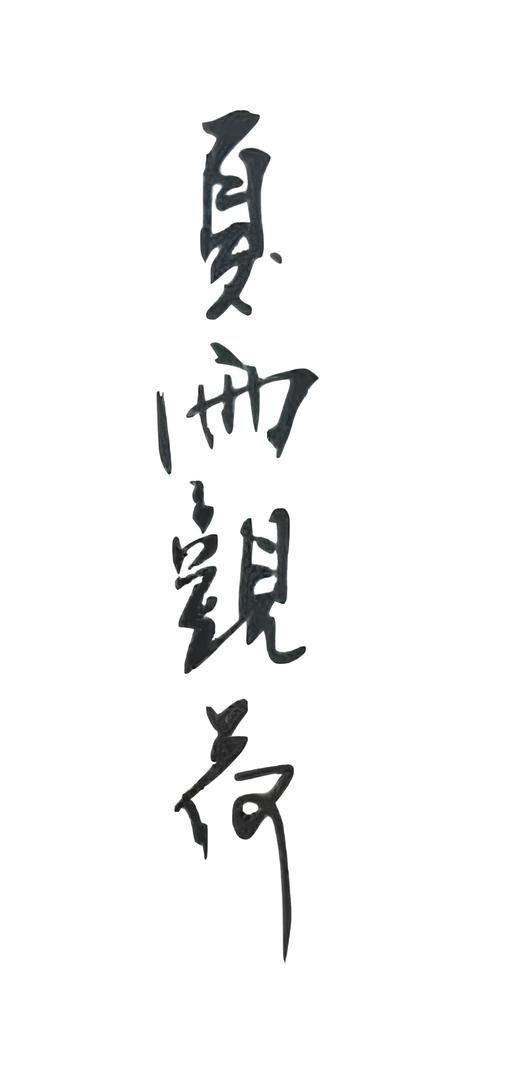 夏雨觀荷